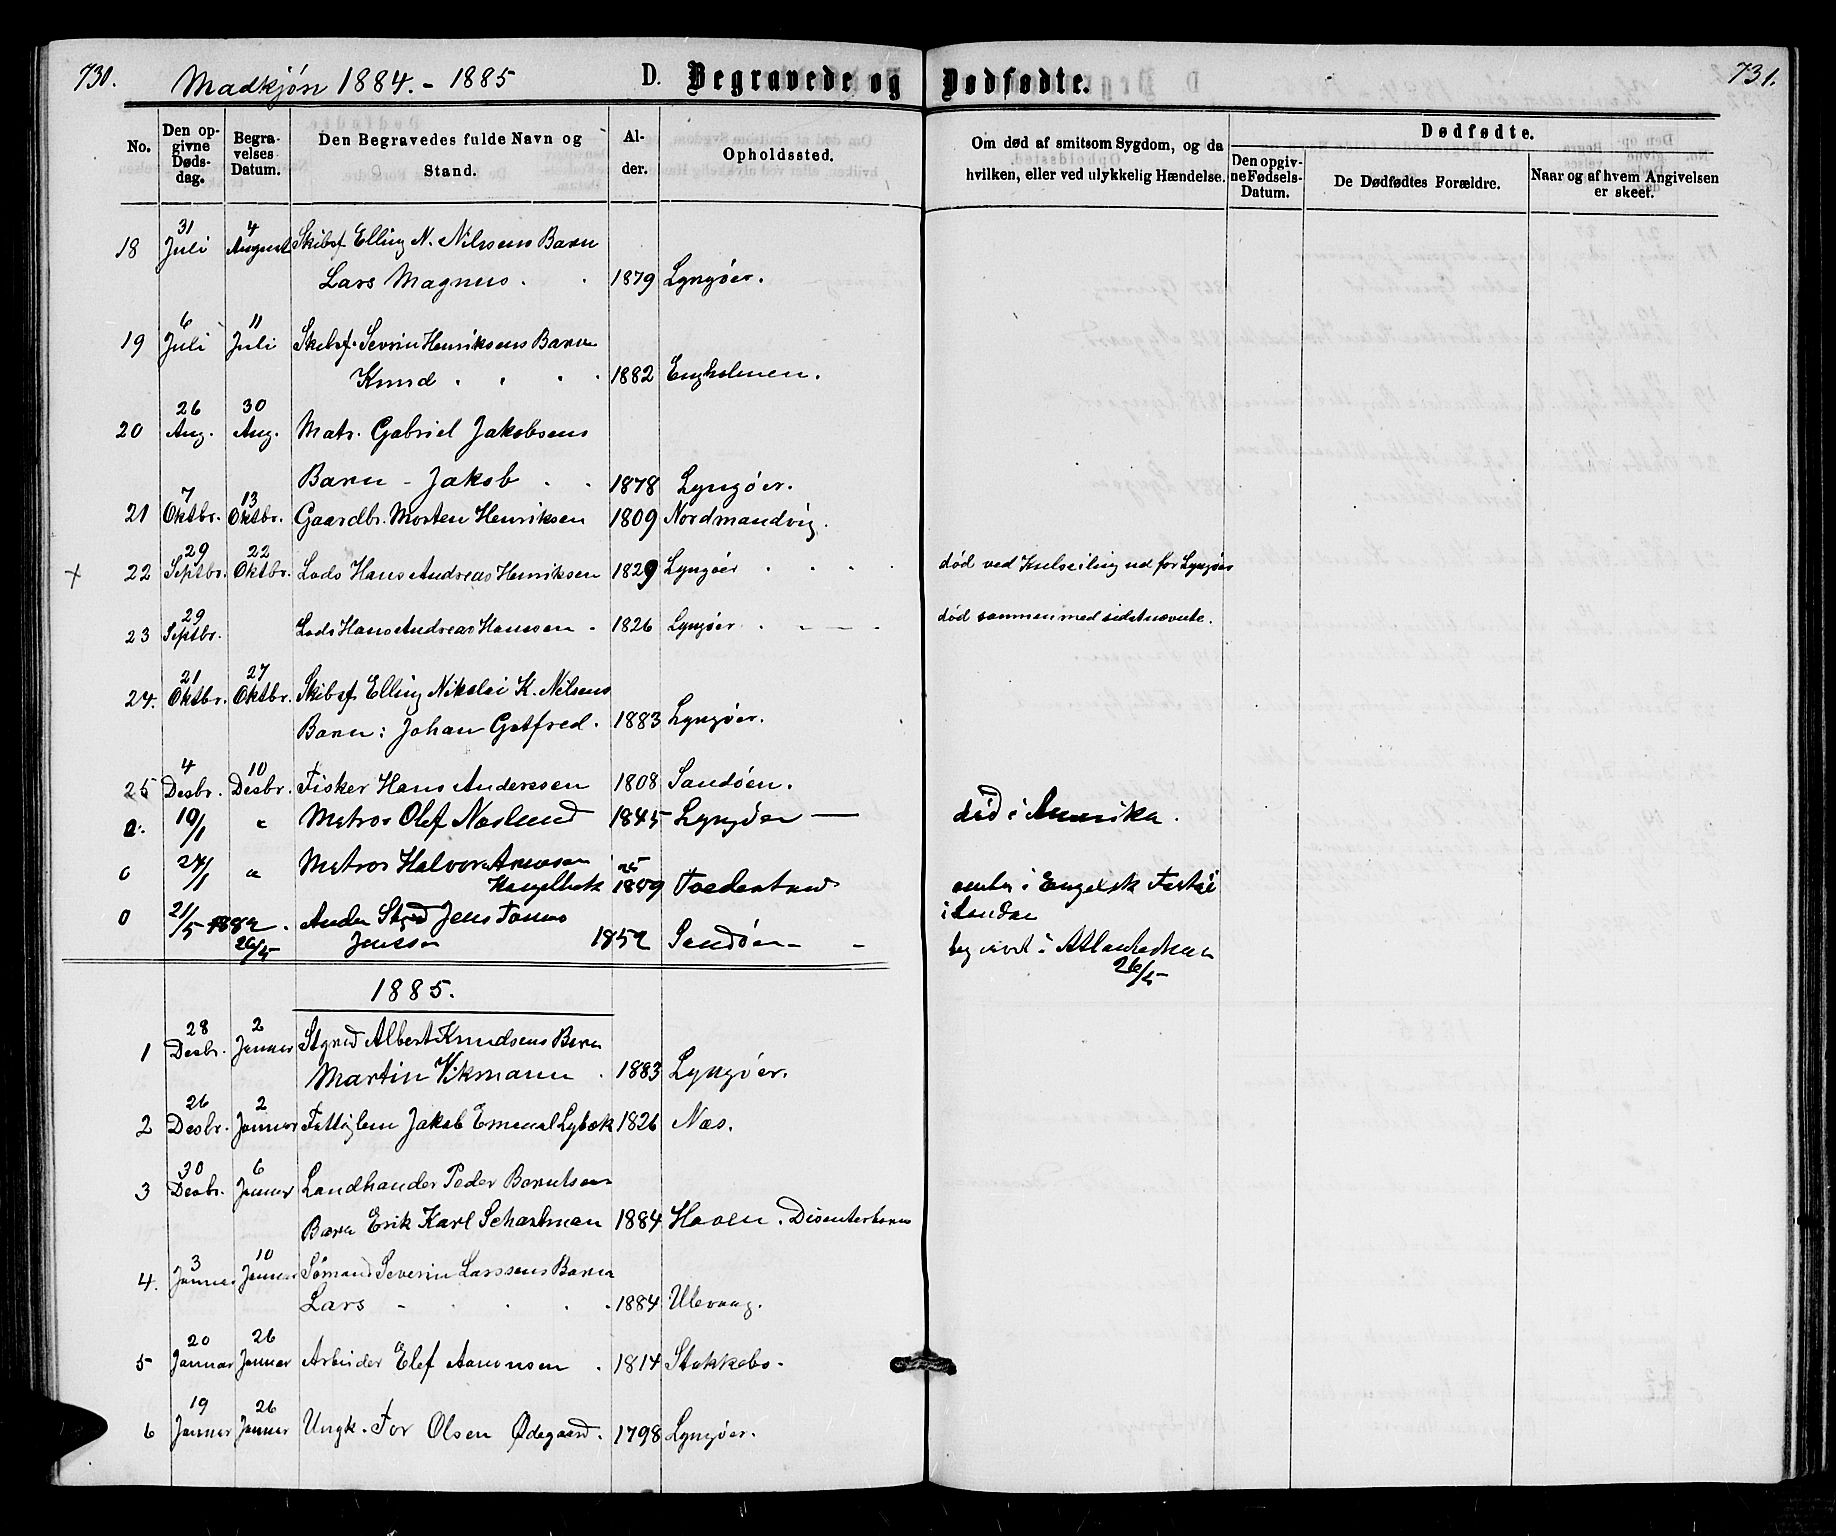 730.
Madkjøn 1884. - 1885
D. Begravede og Dødfødte.
731.
No.
Den opgivne Dødsdag.
Begravelses Datum.
Den Begravedes fulde Navn og Stand.
Alder.
Opholdssted.
Om død af smitsom Sygdom, og da hvilken, eller ved ulykkelig Hændelse.
Dødfødte.
Den opgivne Fødsels-Datum.
De Dødfødtes Forældre.
Naar og af hvem Angivelsen er skeet.
18 31 Juli 4 August Skibsf Elling N. Nilsens Barn
Lars Magnus . . 1879 Lyngøer.
19 6 Juli 11 Juli Skibsf. Sevrin Henriksens Barn
Knud . . . . 1882 Engholmen.
20 26 Aug. 30 Aug. Matr. Gabriel Jakobsens
Barn - Jakob . . 1878 Lyngøer.
21 7 Oktbr. 13 Oktbr. Gaardbr. Morten Henriksen 1809 Nordmandvig.
x 22 29 Septbr. 22 Oktbr. Lods Hans Andreas Henriksen 1829 Lyngøer . . . . død ved Kulseiling ud for Lyngøer
23 29 Septbr. Lods Hans Andreas Hanssen - 1826 Lyngøer død sammen med sidstnævnte.
24. 21 Oktbr. 27 Oktbr. Skibsf Elling Nikolai K. Nilsens
Barn: Johan Gotfred. 1883 Lyngøer.
25 4 Desbr. 10 Desbr. Fisker Hans Anderssen 1808 Sandøen.
0. 10/1 " Matros Olef Næslund 1845 Lyngøer — død i Amerika.
0 24/1 " Matros Halvor
1859 i Engelsk
i London
0 21/5 1882. 26/5 Jens
Jenssen 1852 Sandøen - - i Atlanterhavet
26/5
1885.
1 28 Desbr. 2 Januar Styrmd Albert Knudsens Barn
Martin Vikmann . 1883 Lyngøer.
2 26 Desbr. 2 Januar Fattiglem Jakob Emanuel Lybæk 1826 Næs.
3 30 Desbr. 6 Januar Landhandler Peder Berntsens
Barn Erik Karl Schartman 1884 Haven. Disenterbarn
4. 3 Januar 10 Januar Sømand Severin Larssens Barn
Lars - . . . 1884 Ulevaag.
5 20 Januar 26 Januar Arbeider Elef Aanonsen . 1814 Stokkebo.
6 19 Januar 26 Januar Ungk. Tor Olsen Ødegaard. 1798 Lyngøer.